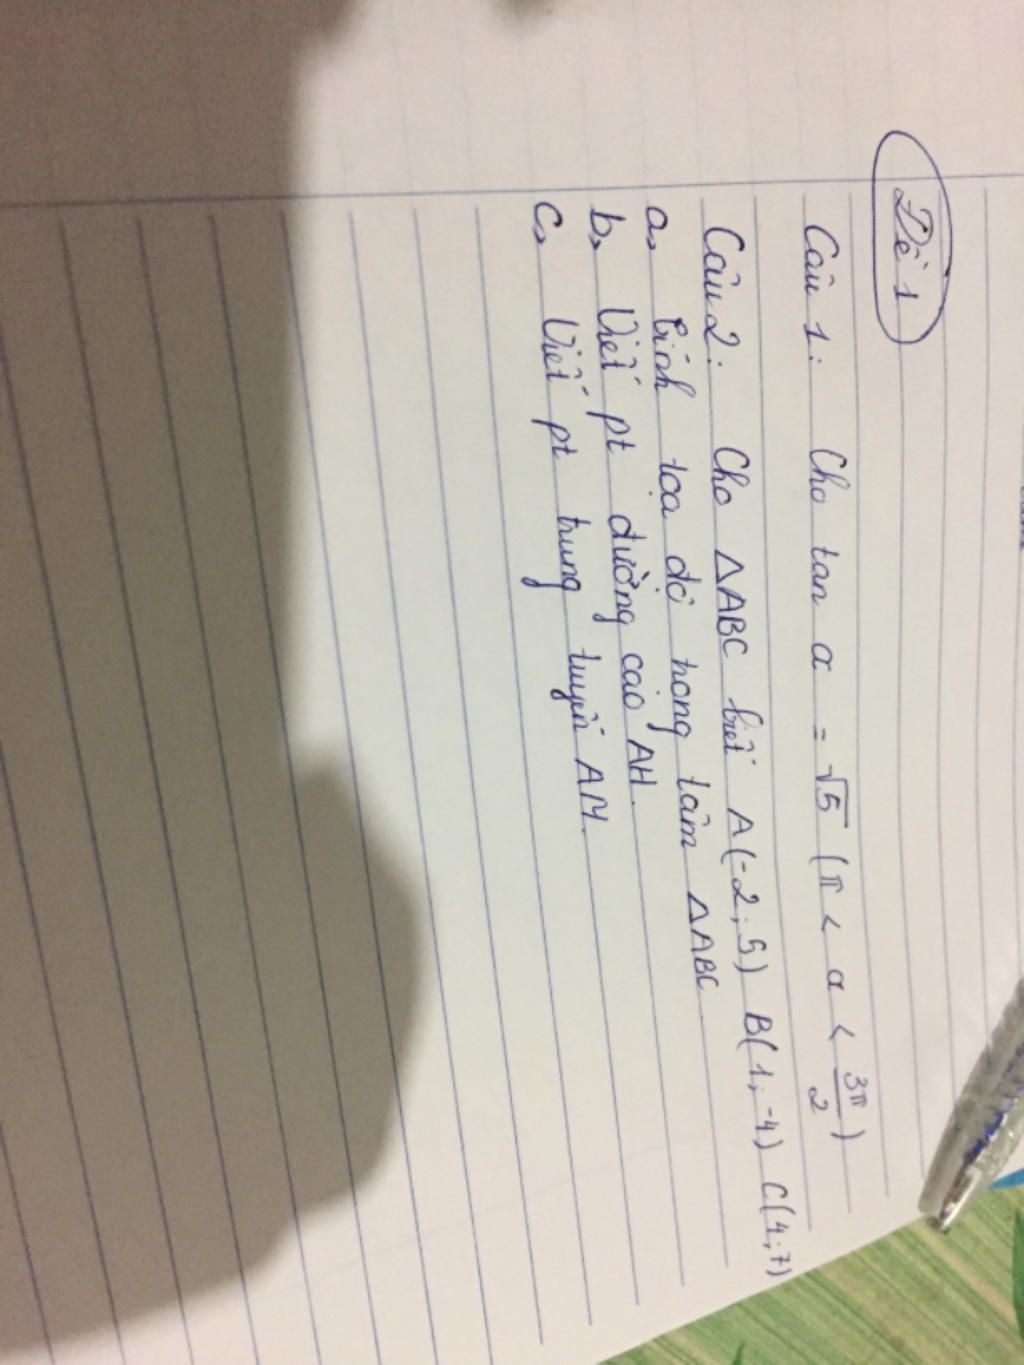 Đề 1
Câu 1: Cho tan a = √5 (π < a < 3π/2)
Câu 2: Cho △ABC biết A(-2; 5) B(1; -4) C(4; 7)
a, Tính tọa độ trọng tâm △ABC
b, Viết pt đường cao AH.
c, Viết pt trung tuyến AM.